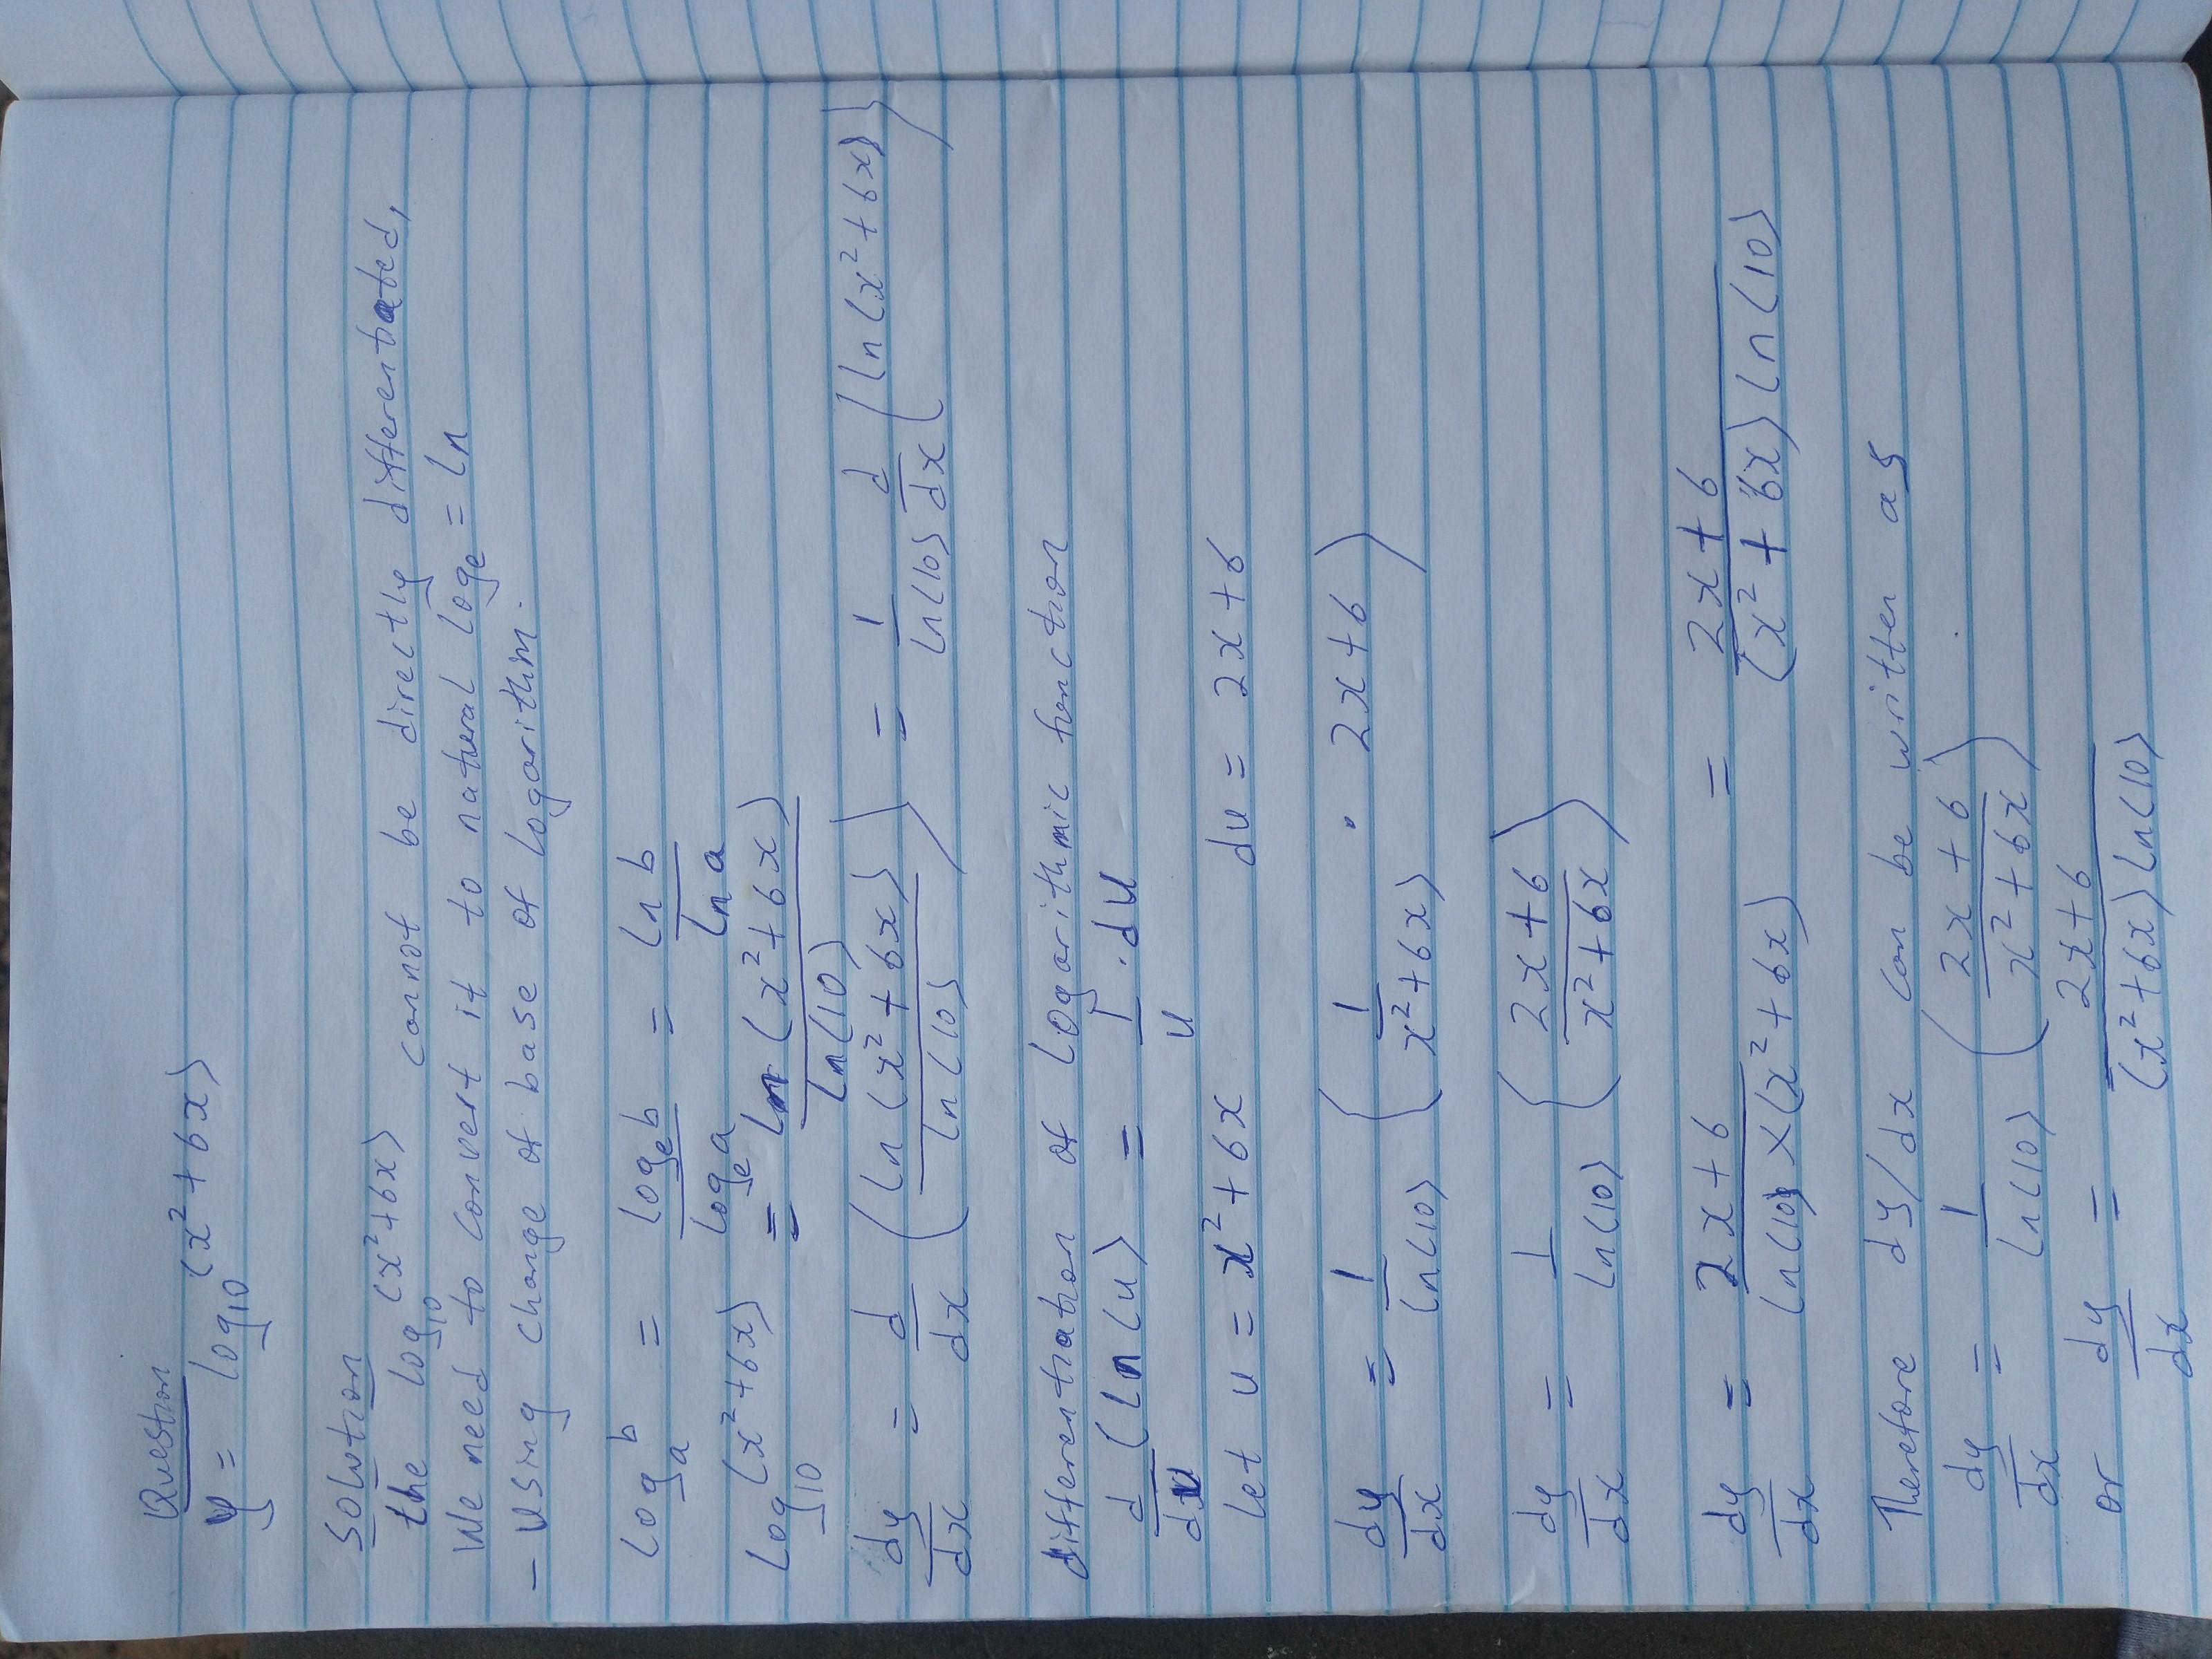 Question
y = log₁₀(x² + 6x)
Solution
the log₁₀(x² + 6x) cannot be directly differentiated,
We need to convert it to natural logₑ = ln
- Using change of base of logarithm.
logₐ b = logₑ b / logₑ a = ln b / ln a
log₁₀(x² + 6x) = ln(x² + 6x) / ln(10)
dy/dx = d/dx (ln(x² + 6x) / ln(10)) = 1/ln(10) d/dx (ln(x² + 6x))
differentiation of logarithmic function
d/du (ln(u)) = 1/u . du
let u = x² + 6x du = 2x + 6
dy/dx = 1/ln(10) (1/(x² + 6x) . 2x + 6)
dy/dx = 1/ln(10) (2x + 6 / x² + 6x)
dy/dx = 2x + 6 / ln(10) × (x² + 6x) = 2x + 6 / (x² + 6x) ln(10)
Therefore dy/dx can be written as
dy/dx = 1/ln(10) (2x + 6 / x² + 6x)
or dy/dx = 2x + 6 / (x² + 6x) ln(10)